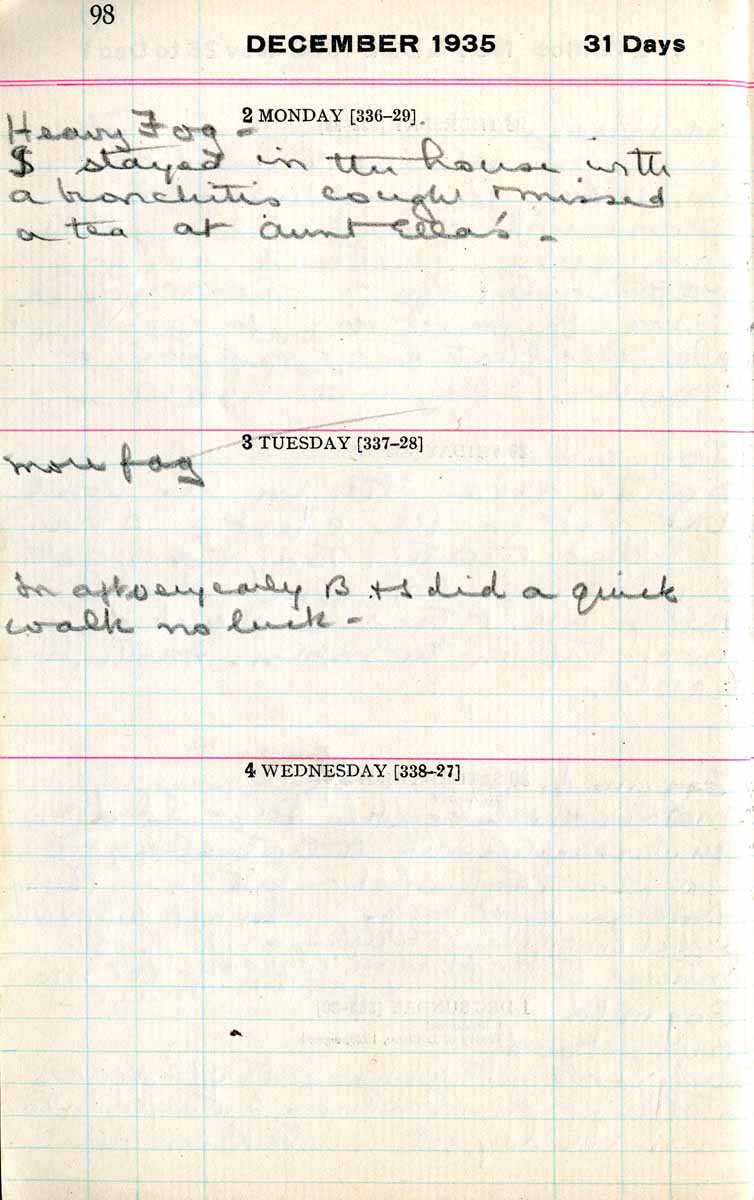 98
DECEMBER 1935 31 Days
2 MONDAY [336–29]
Heavy Fog –
stayed in the house with
a bronchitis cough + missed
a tea at Aunt Ella's –
3 TUESDAY [337–28]
more fog
In early B + I did a quick
walk no luck –
4 WEDNESDAY [338–27]